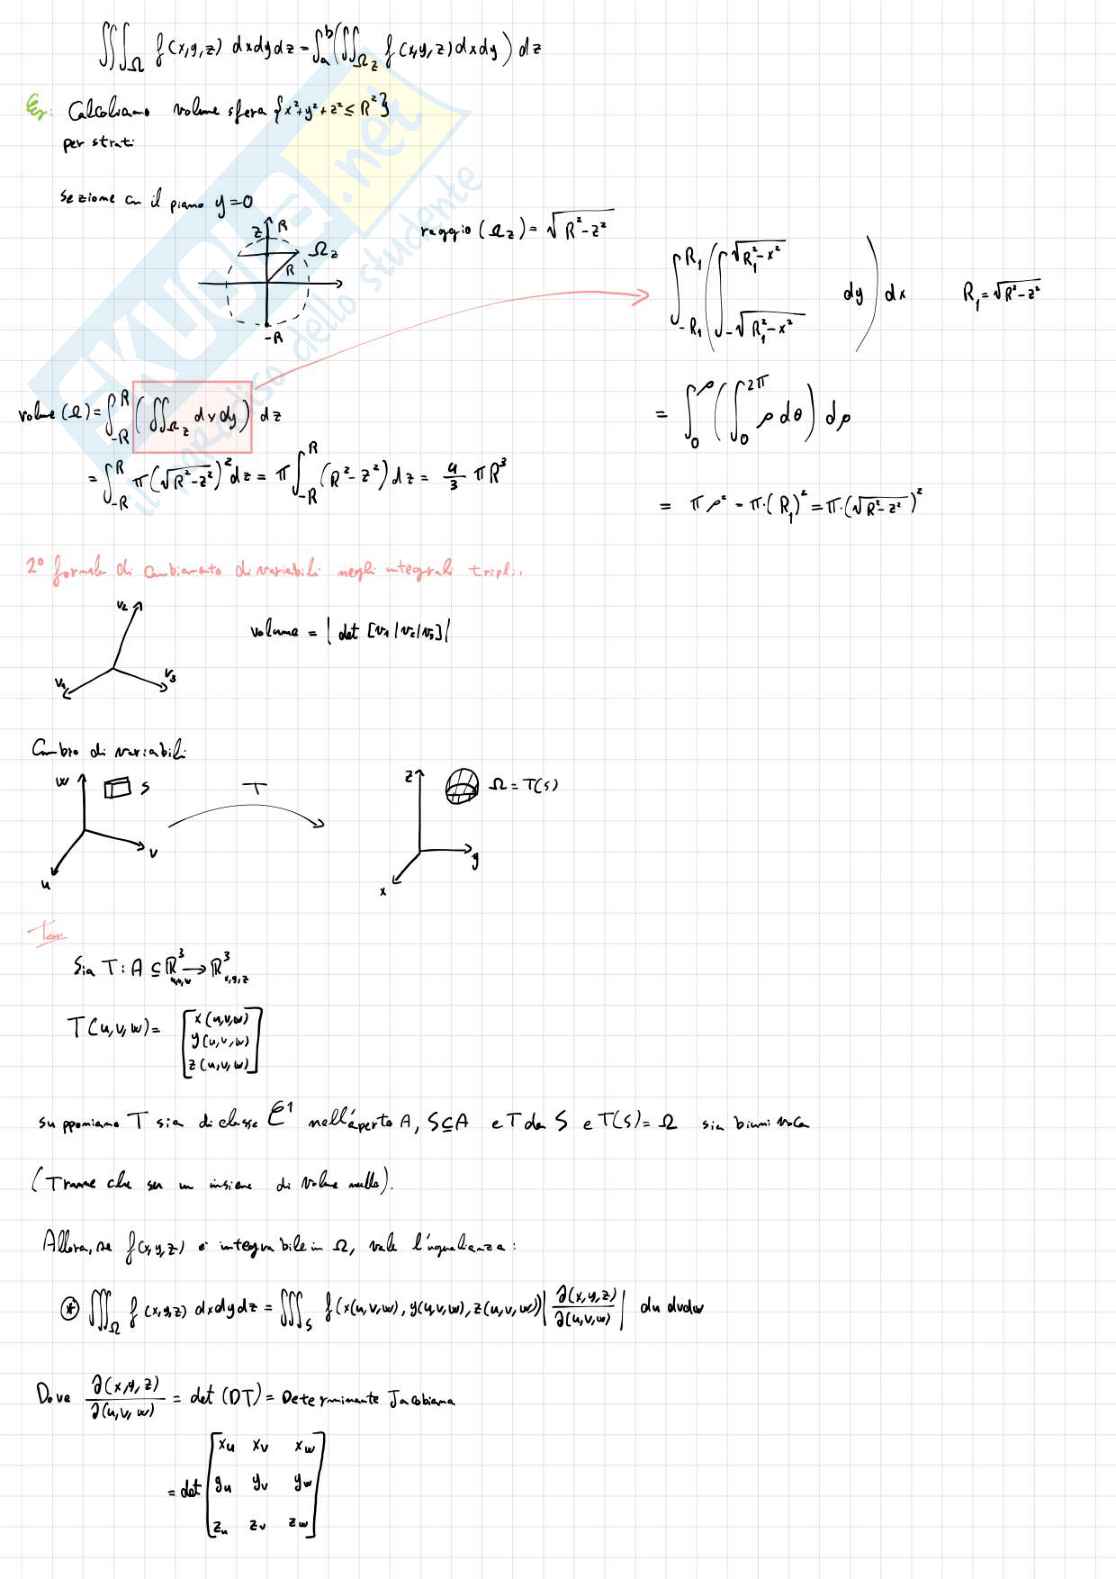 ∭_Ω f(x,y,z) dxdydz = ∫_a^b (∬_Ωz f(x,y,z) dxdy) dz
Es: Calcoliamo volume sfera {x²+y²+z² ≤ R²}
per strati
Sezione con il piano y=0
z R
Ω_z
R
-R
raggio (Ω_z) = √(R²-z²)
∫_{-R₁}^{R₁} (∫_{-√(R₁²-x²)}^{√(R₁²-x²)} dy) dx R₁ = √(R²-z²)
volume (Ω) = ∫_{-R}^{R} (∬_Ωz dxdy) dz
= ∫_0^ρ (∫_0^{2π} ρ dθ) dρ
= ∫_{-R}^{R} π(√(R²-z²))² dz = π ∫_{-R}^{R} (R²-z²) dz = 4/3 πR³
= πρ² = π·(R₁)² = π·(√(R²-z²))²
2° formula di cambiamento di variabili negli integrali tripli.
v₂
v₁
v₃
volume = |det [v₁|v₂|v₃]|
Cambio di variabili
w S T z Ω = T(S)
v y
u x
Teor
Sia T: A ⊆ ℝ³_{u,v,w} → ℝ³_{x,y,z}
T(u,v,w) = [x(u,v,w)
y(u,v,w)
z(u,v,w)]
supponiamo T sia di classe C¹ nell'aperto A, S⊆A e T da S e T(S)=Ω sia biunivoca
(Tranne che su un insieme di volume nullo).
Allora, se f(x,y,z) è integrabile in Ω, vale l'uguaglianza:
⊛ ∭_Ω f(x,y,z) dxdydz = ∭_S f(x(u,v,w), y(u,v,w), z(u,v,w)) |∂(x,y,z)/∂(u,v,w)| du dvdw
Dove ∂(x,y,z)/∂(u,v,w) = det (DT) = Determinante Jacobiana
= det [x_u x_v x_w
y_u y_v y_w
z_u z_v z_w]
SKUOLA.net
il paradiso dello studente